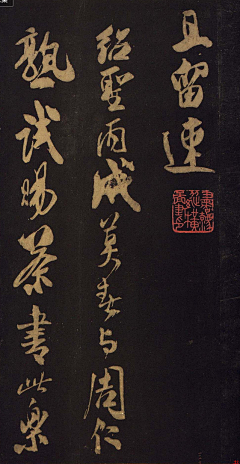 且留連
紹聖丙成莫春与周仁
熟试賜茶書此樂